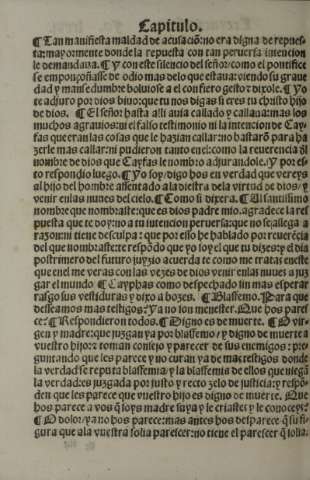 Capitulo.
¶ Tan manifiesta maldad de acusaciõ: no era digna de repues-
ta: mayormente donde la repuesta con tan peruersa intencion
le demandaua. ¶ Y con este silencio del señor: como el pontifice
se emponçoñasse de odio mas delo que estaua: viendo su graue
dad y mansedumbre boluiose a el con fiero gesto: z dixole. ¶ Yo
te adjuro por dios biuo: que tu nos digas si eres tu christo hijo
de dios. ¶ El señor hasta alli auia callado y callaua: mas los
muchos agrauios: ni el falso testimonio ni la intencion de Cay-
fas que eran las cosas que le hazian callar: no bastarõ para ha
zerle mas callar: ni pudieron tanto enel: como la reuerencia ðl
nombre de dios que Cayfas le nombro adjurandole. Y por es-
to respondio luego. ¶ Yo soy: digo hos en verdad que vereys
al hijo del hombre assentado ala diestra dela virtud de dios: y
venir enlas nuues del cielo. ¶ Como si dixera. ¶ Al santissimo
nombre que nombraste: que es dios padre mio. agradece la res
puesta que te doy: no a tu intencion peruersa: que no se allega a
razon ni tiene desculpa: que por esso he hablado por reuerẽcia
del que nombraste: te respõdo que yo soy el que tu dizes: y el dia
postrimero del futuro juyzio acuerda te como me tratas en este
que enel me veras con las vezes de dios venir enlas nuues a juz
gar el mundo ¶ Cayphas como despechado sin mas esperar
rasgo sus vestiduras y dixo a bozes. ¶ Blasfemo. Para que
desseamos mas testigos: ya no son menester. Que hos pares
ce: ¶ Respondieron todos. ¶ Digno es de muerte. ¶ O vir-
gen y madre: que juzgan ya por blasfemo: y digno de muerte a
vuestro hijo: z toman consejo y parecer de sus enemigos: pre-
guntando que les parece y no curan ya de mas testigos donde
la verdad se reputa blasfemia: y la blasfemia de ellos que niegã
la verdad: es juzgada por justo y recto zelo de justicia: y respõ-
den que les parece que vuestro hijo es digno de muerte. Que
hos parece a vos q̃ soys madre suya y le criastes y le conoceys:
¶ O dolor: ya no hos parece: mas antes hos desparece q̃ su fi-
gura que ala vuestra solia parescer: no tiene el parescer q̃ solia.